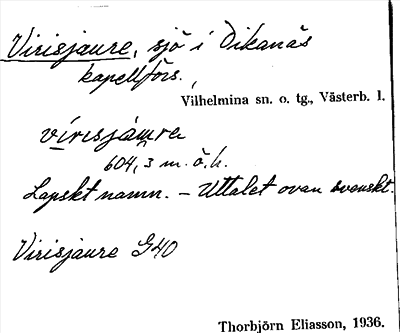 Virisjaure, sjö i Dikanäs
kapellförs.,
Vilhelmina sn. o. tg., Västerb. l.
vírisjàu̯re
604,3 m. ö. h.
Lapskt namn. – Uttalet ovan svenskt.
Virisjaure G40
Thorbjörn Eliasson, 1936.